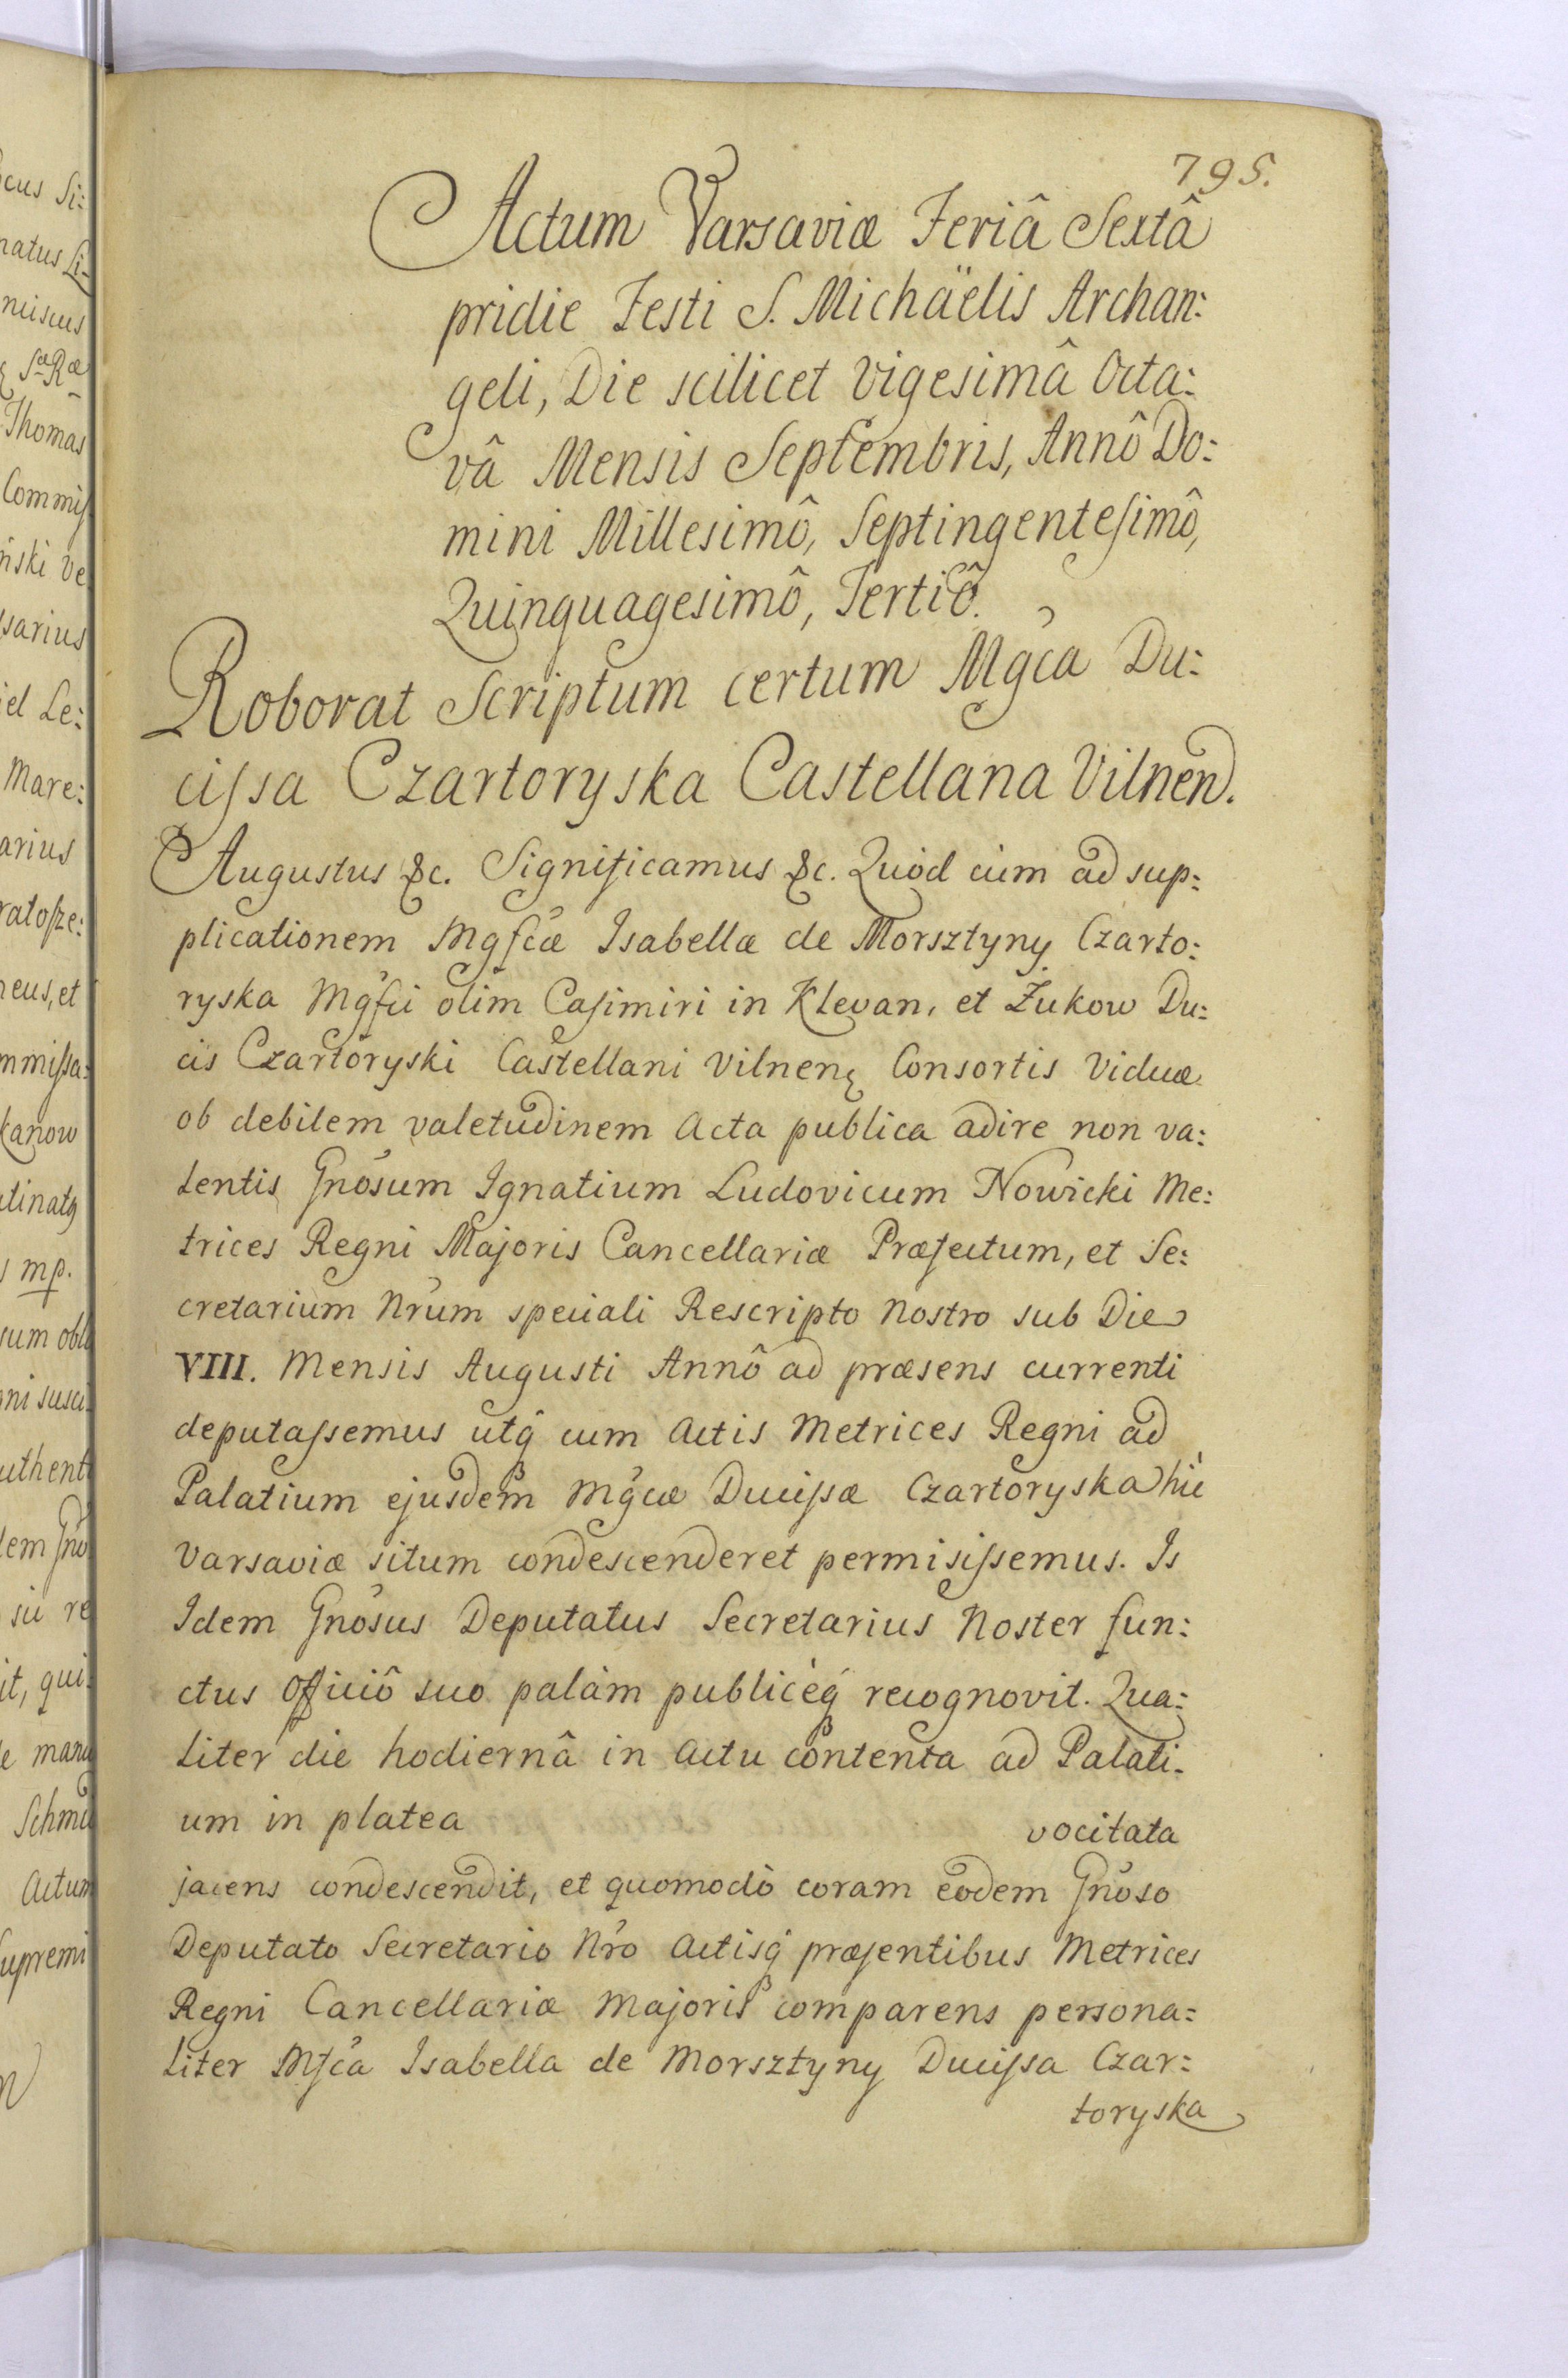 795.
Actum Varsaviæ Feriâ Sextâ
pridie Festi S. Michäelis Archan:
geli, Die scilicet Vigesimâ Octa:
vâ Mensis Septembris, Annô Do:
mini Millesimô, Septingentesimô,
Quinquagesimô, Tertiô.
Roborat Scriptum certum Mgca Du:
cissa Czartoryska Castellana Vilnen.
Augustus &c. Significamus &c. Quòd cùm ad sup:
plicationem Mgfcæ Isabellæ de Morsztyny Czarto:
ryska Mgfci olim Casimiri in Klevan, et Żukow Du:
cis Czartoryski Castellani Vilnen Consortis Viduæ
ob debilem valetudinem Acta publica adire non va:
lentis Gnosum Ignatium Ludovicum Nowicki Me:
trices Regni Majoris Cancellariæ Præfectum, et Se:
cretarium Nrum speciali Rescripto Nostro sub Die
VIII. Mensis Augusti Annô ad præsens currenti
deputassemus utq cum Actis Metrices Regni ad
Palatium ejusdem Mgcæ Ducissæ Czartoryska hic
Varsaviæ situm condescenderet permisissemus. Is
Idem Gnosus Deputatus Secretarius Noster fun:
ctus Officiô suo palàm publicèq recognovit. Qua:
liter die hodiernâ in Actu contenta ad Palati:
um in platea vocitata
jacens condescendit, et quomodò coram eodem Gnoso
Deputato Secretario Nro Actisq præsentibus Metrices
Regni Cancellariæ Majoris comparens persona:
liter Mfca Isabella de Morsztyny Ducissa Czar:
toryska